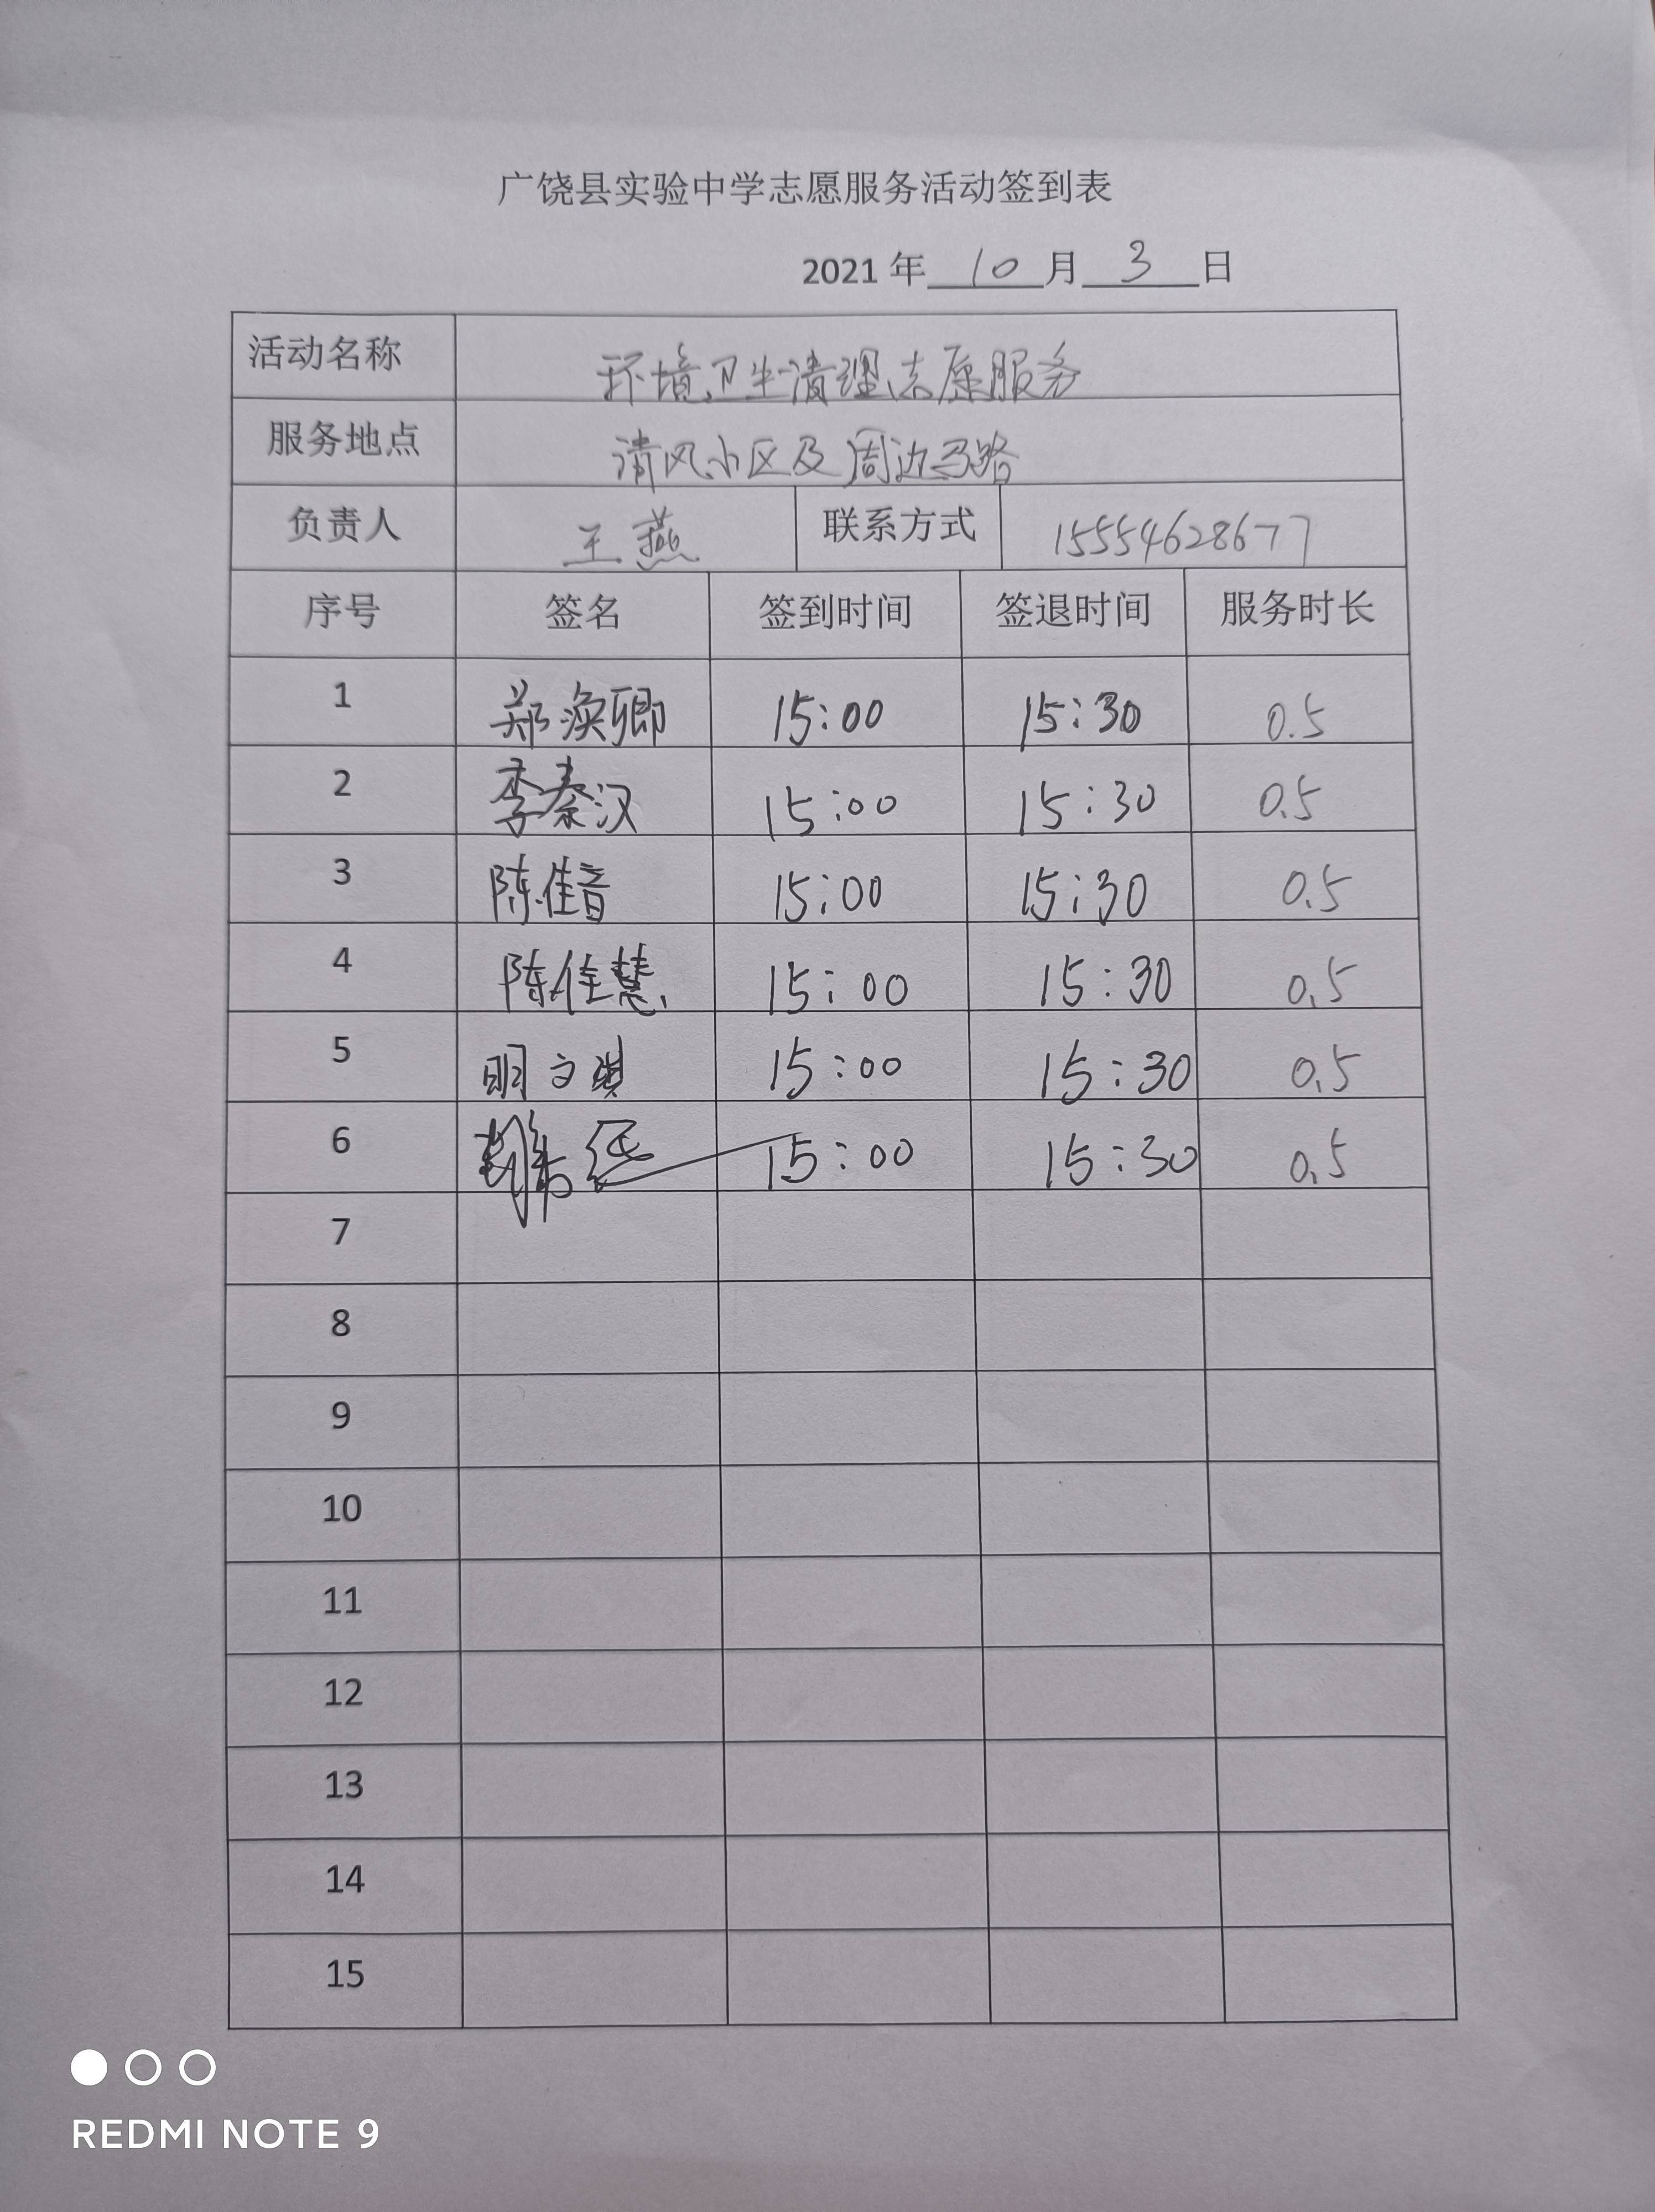 广饶县实验中学志愿服务活动签到表
2021 年 10 月 3 日
活动名称 环境卫生清理志愿服务
服务地点 清风小区及周边马路
负责人 王燕 联系方式 15554628677
序号 签名 签到时间 签退时间 服务时长
1 郑涣卿 15:00 15:30 0.5
2 李秦汉 15:00 15:30 0.5
3 陈佳音 15:00 15:30 0.5
4 陈佳慧 15:00 15:30 0.5
5 明文琪 15:00 15:30 0.5
6 15:00 15:30 0.5
7
8
9
10
11
12
13
14
15
REDMI NOTE 9